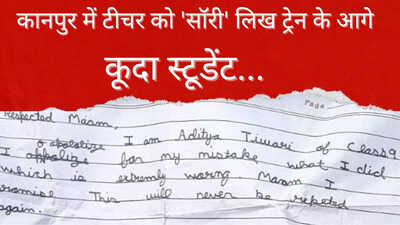 कानपुर में टीचर को 'सॉरी' लिख ट्रेन के आगे
कूदा स्टूडेंट...
Respected Maam,
I am Aditya Tiwari of Class 9
I apologize for my mistake what I did
which is extremly worng. Maam I
promise This will never be repeted
again.